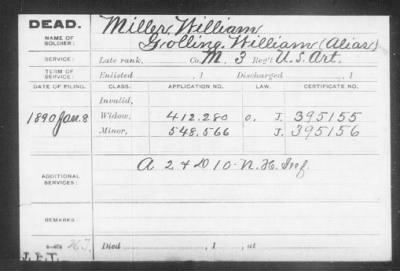 DEAD. Miller, William
NAME OF SOLDIER: Grolling, William (Alias)
SERVICE: Late rank, Co. M. 3 Reg't U.S. Art.
TERM OF SERVICE: Enlisted , 1 Discharged , 1
DATE OF FILING. CLASS. APPLICATION NO. LAW. CERTIFICATE NO.
Invalid,
1890 Jan. 8 Widow, 412.280 O. J. 395155
Minor, 548.566 J. 395156
ADDITIONAL SERVICES: A 2 & D 10 - N.H. Inf.
REMARKS:
Died , 1 , at